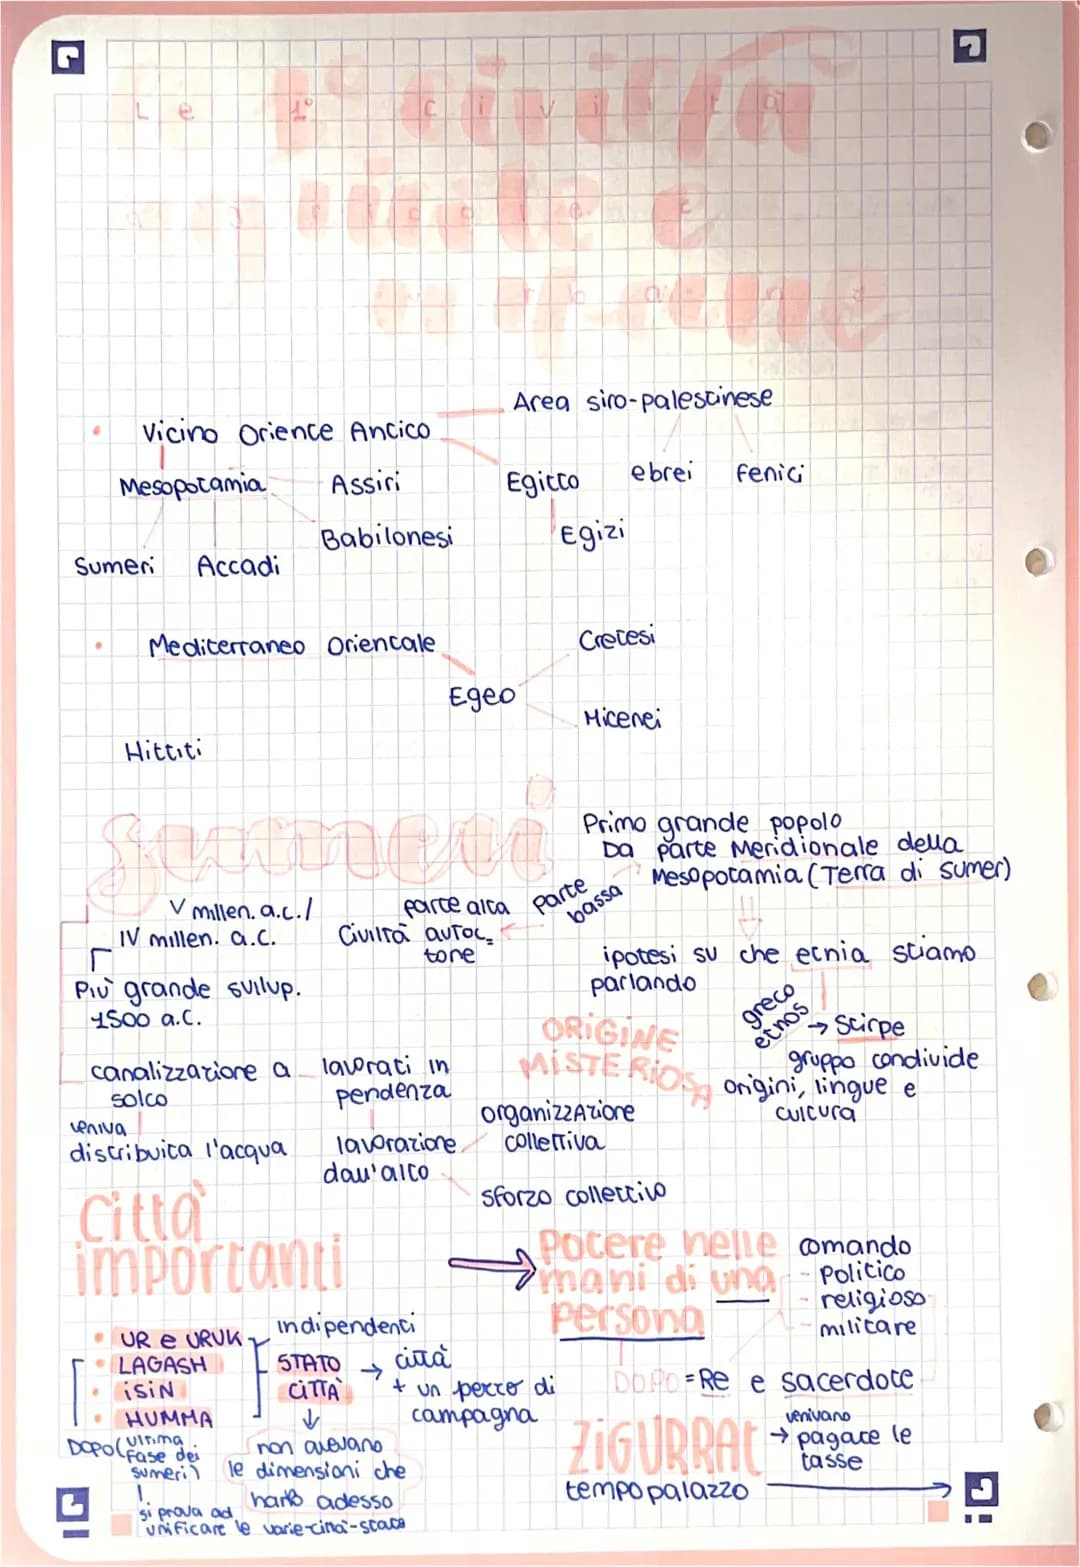 Le 1° civiltà
agricole e
urbane
Area siro-palestinese
Vicino Oriente Antico
Mesopotamia
Assiri
Egitto
ebrei
fenici
Babilonesi
Egizi
Sumeri
Accadi
Mediterraneo Orientale
Cretesi
Egeo
Micenei
Hittiti
sumeri
Primo grande popolo
Da parte Meridionale della
Mesopotamia (Terra di Sumer)
V millen. a.c./
IV millen. a.C.
Più grande svilup.
1500 a.C.
parte alta
parte
bassa
Civiltà autoc_
tone
ipotesi su che etnia stiamo
parlando
greco
etnos
→ Stirpe
gruppo condivide
origini, lingue e
cultura
ORIGINE
MISTERIOSA
canalizzazione a
solco
veniva
distribuita l'acqua
lavorati in
pendenza
lavorazione
dall'alto
organizzazione
collettiva
sforzo collettivo
Città
importanti
Potere nelle
mani di una
persona
comando
- politico
- religioso
- militare
• UR e URUK
• LAGASH
• ISIN
• HUMMA
indipendenti
STATO
CITTÀ
→ città
+ un pezzo di
campagna
non avevano
le dimensioni che
hanno adesso
DOPO (ultima
fase dei
sumeri)
si prova ad
unificare le varie città-stato
DOPO = Re e sacerdote
ZIGURRAT
tempo palazzo
venivano
→ pagate le
tasse